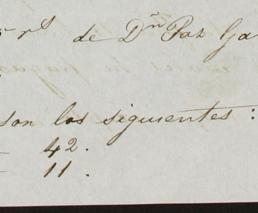 rs. de Dn Paz Ga
son los siguientes:
42.
11.